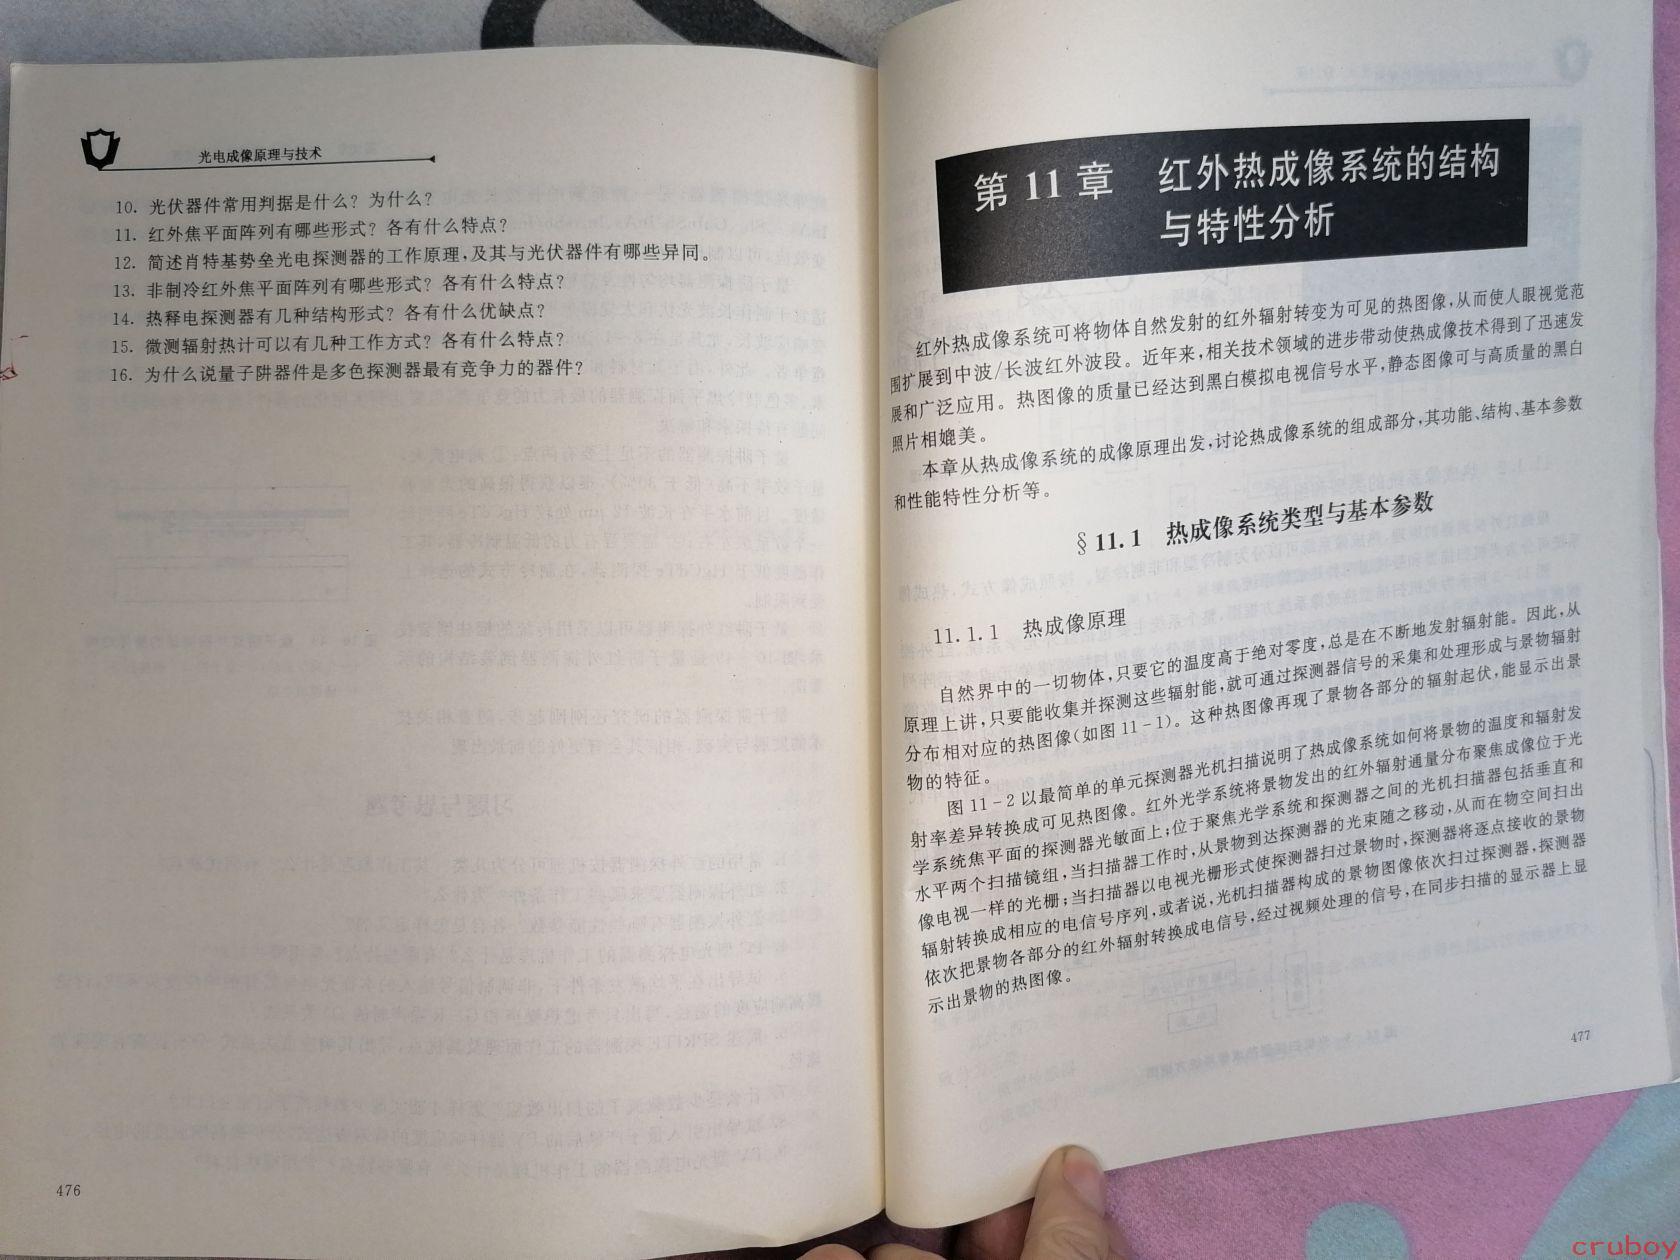 光电成像原理与技术
10. 光伏器件常用判据是什么？为什么？
11. 红外焦平面阵列有哪些形式？各有什么特点？
12. 简述肖特基势垒光电探测器的工作原理,及其与光伏器件有哪些异同。
13. 非制冷红外焦平面阵列有哪些形式？各有什么特点？
14. 热释电探测器有几种结构形式？各有什么优缺点？
15. 微测辐射热计可以有几种工作方式？各有什么特点？
16. 为什么说量子阱器件是多色探测器最有竞争力的器件？
476
第 11 章 红外热成像系统的结构
与特性分析
红外热成像系统可将物体自然发射的红外辐射转变为可见的热图像,从而使人眼视觉范
围扩展到中波/长波红外波段。近年来,相关技术领域的进步带动使热成像技术得到了迅速发
展和广泛应用。热图像的质量已经达到黑白模拟电视信号水平,静态图像可与高质量的黑白
照片相媲美。
本章从热成像系统的成像原理出发,讨论热成像系统的组成部分,其功能、结构、基本参数
和性能特性分析等。
§ 11.1 热成像系统类型与基本参数
11.1.1 热成像原理
自然界中的一切物体,只要它的温度高于绝对零度,总是在不断地发射辐射能。因此,从
原理上讲,只要能收集并探测这些辐射能,就可通过探测器信号的采集和处理形成与景物辐射
分布相对应的热图像(如图 11-1)。这种热图像再现了景物各部分的辐射起伏,能显示出景
物的特征。
图 11-2 以最简单的单元探测器光机扫描说明了热成像系统如何将景物的温度和辐射发
射率差异转换成可见热图像。红外光学系统将景物发出的红外辐射通量分布聚焦成像位于光
学系统焦平面的探测器光敏面上;位于聚焦光学系统和探测器之间的光机扫描器包括垂直和
水平两个扫描镜组,当扫描器工作时,从景物到达探测器的光束随之移动,从而在物空间扫出
像电视一样的光栅;当扫描器以电视光栅形式使探测器扫过景物时,探测器将逐点接收的景物
辐射转换成相应的电信号序列,或者说,光机扫描器构成的景物图像依次扫过探测器,探测器
依次把景物各部分的红外辐射转换成电信号,经过视频处理的信号,在同步扫描的显示器上显
示出景物的热图像。
477
cruboy